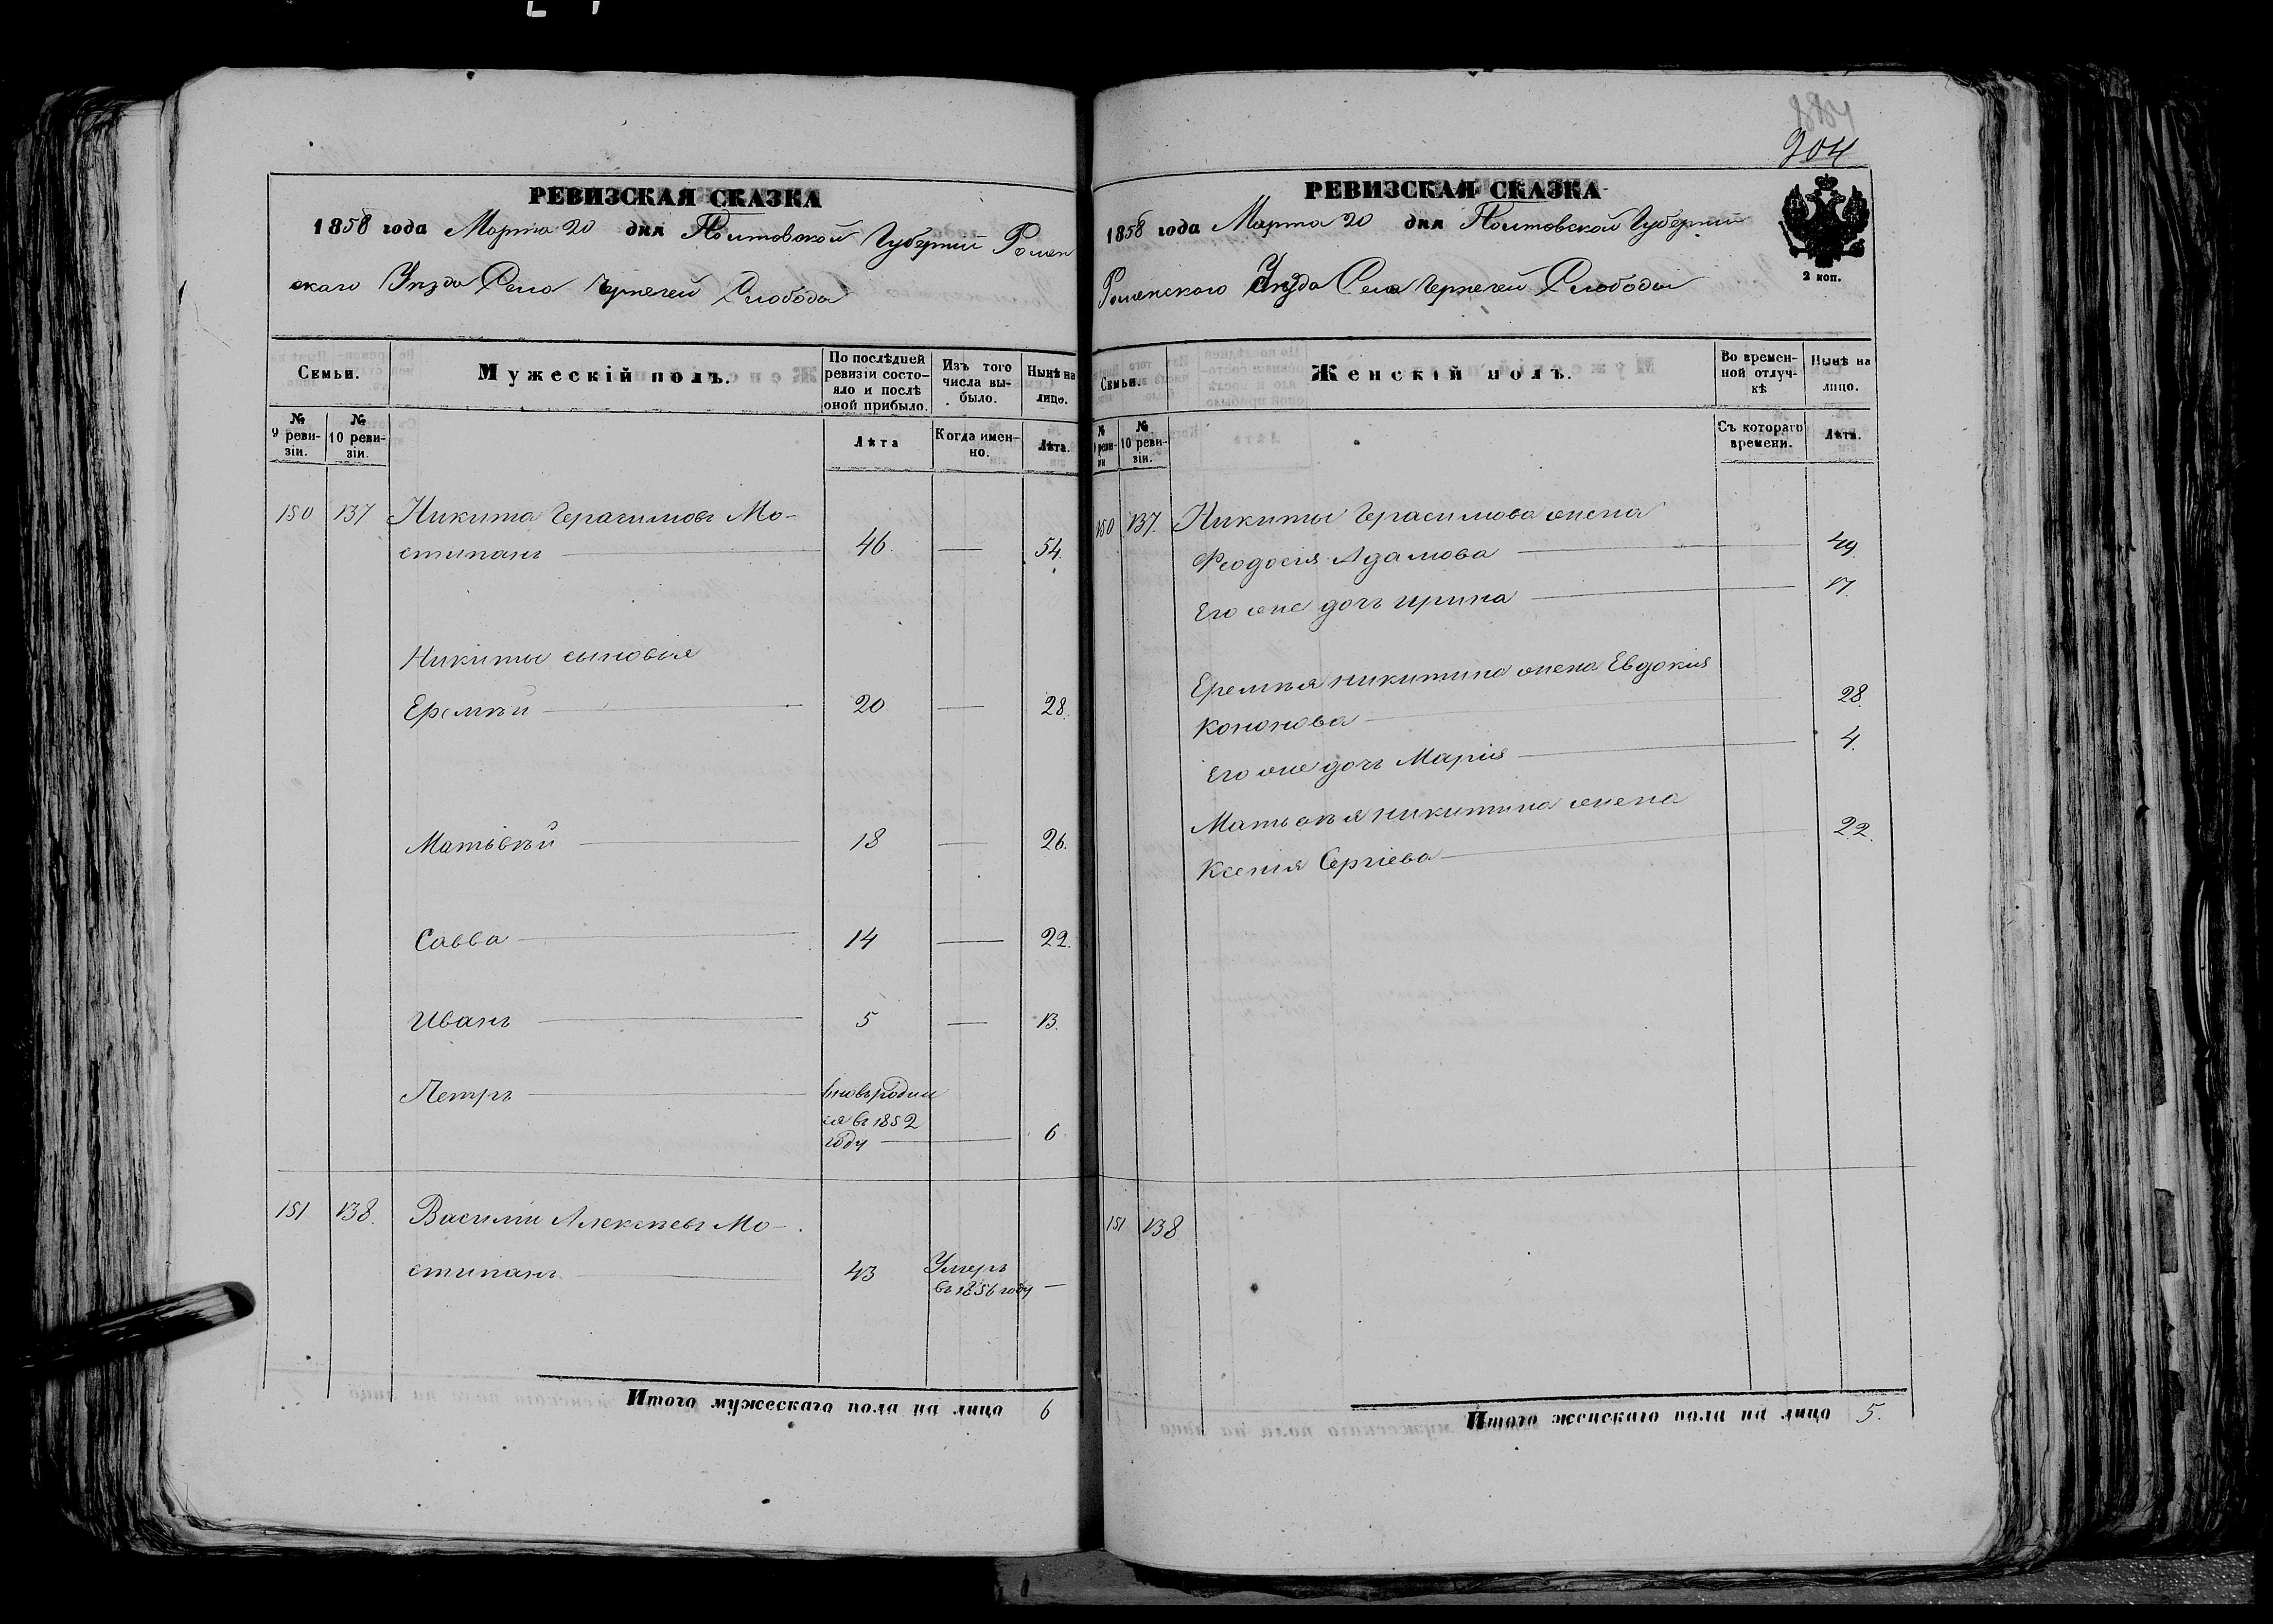 РЕВИЗСКАЯ СКАЗКА
1858 года Марта 20 дня Полтавской Губерніи Ромен
скаго Уѣзда Село Чернечей Слобода
Семьи.
Мужескій полъ.
По послѣдней ревизіи состо-
яло и послѣ
оной прибыло.
Изъ того
числа вы-
было.
Нынѣ на
лицо.
№
9 реви-
зіи.
№
10 реви-
зіи.
Лѣта
Когда имен-
но.
Лѣта.
150 137 Никита Герасимовъ Мо-
стипанъ 46. 54.
Никиты сыновья
Еремѣй 20 28.
Матвѣй 18 26.
Савва 14 22.
Иванъ 5 13.
Петръ вновь родил
ся въ 1852
году 6
151 138. Василій Алексѣевъ Мо-
стипанъ 43 Умеръ
въ 1856 году
Итого мужескаго пола на лицо 6
204
РЕВИЗСКАЯ СКАЗКА
1858 года Марта 20 дня Полтавской Губерніи
2 коп.
Роменского Уѣзда Села Чернечей Слободы
Семьи.
Женскій полъ.
Во времен-
ной отлуч-
кѣ
Нынѣ на
лицо.
№
9 реви-
зіи
№
10 реви-
зіи.
Съ котораго
времени.
Лѣта.
150 137. Никиты Герасимова жена
Феодосія Адамова 49.
Его же дочь Ирина 17.
Еремѣя Никитина жена Евдокія
Кононова 28.
Его же дочь Марія 4.
Матвѣя Никитина жена
Ксенія Сергіева 22.
151 138
Итого женскаго пола на лицо 5.